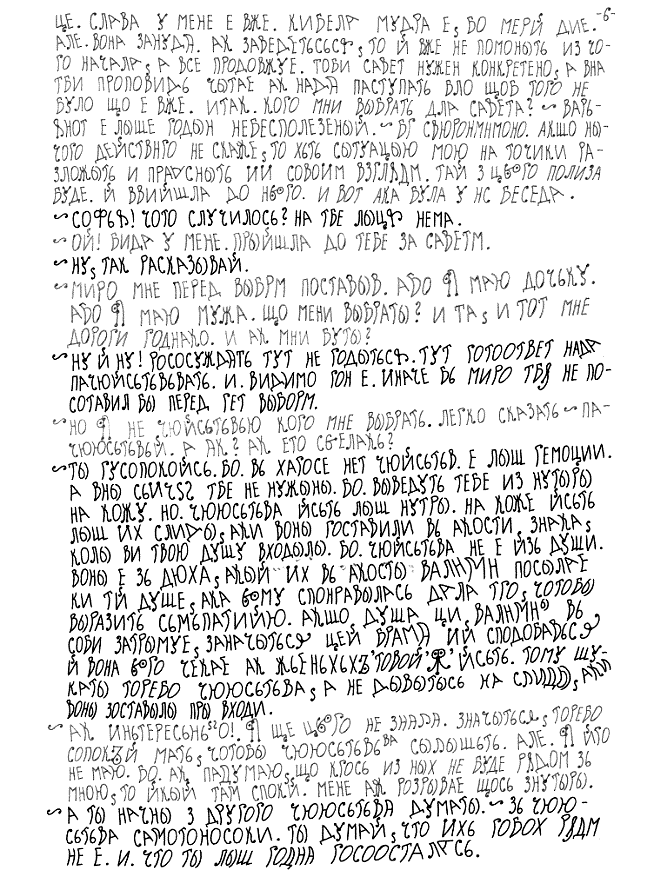 -6-
ЦЕ. СЛАВА У МЕНЕ Е ВЖЕ. КИВЕЛА МУДРА Е, БО МЕРІЙ ДИЕ.
АЛЕ ВОНА ЗАНУДА. АК ЗАВЕДЕТЬСЬСЯ, ТО Й ВЖЕ НЕ ПОМОНЫТЬ ИЗ ЧО-
ГО НАЧАЛА, А ВСЕ ПРОДОВЖУЕ. ТОБИ САВЕТ НУЖЕН КОНКРЕТЕНО, А ВНА
ТБИ ПРОПОВИДЬ ЧЫТАЕ АК НАДА ПАСТУПАТЬ БЛО ЩОБ ТОГО НЕ
БУЛО ЩО Е ВЖЕ. ИТАК. КОГО МНИ ВЫБРАТЬ ДЛА САВЕТА? ~ ВАРЬ-
ЯНОТ Е ЛЫШЕ ГОДЫН НЕБЕСПОЛЕЗЕНЫЙ. ~ АКШО НЫ-
ЧОГО НЕ СКАЖЕ, ТО ХЬТЬ СЫТУАЦЫЮ МОЮ НА ТОЧИКИ РА-
ЗЛОЖЫТЬ И ПРАУСНЫТЬ ИИ СОВОИМ ВЗГЛЯДМ. ТАЙ З ЦЬОГО ПОЛИЗА
БУДЕ. Й ВВИЙШЛА ДО НЬОГО. И ВОТ АКА БУЛА У НС БЕСЕДА.
~ СОФЬЯ! ЧОТО СЛУЧИЛОСЬ? НА ТБЕ ЛЫЦЯ НЕМА.
~ ОЙ! БИДА У МЕНЕ. ПРЫЙШЛА ДО ТЕБЕ ЗА САВЕТМ.
~ НУ, ТАК РАСКАЗЫВАЙ.
~ МИРО МНЕ ПЕРЕД ВЫБРМ ПОСТАВЫВ. АБО Я МАЮ ДОЧЬКУ.
АБО Я МАЮ МУЖА. ЩО МЕНИ ВЫБРАТЫ? И ТА, И ТОТ МНЕ
ДОРОГИ ГОДНАКО. И АК МНИ БУТЫ?
~ НУ Й НУ! РОСОСУЖДАТЬ ТУТ НЕ ГОДЫТЬСЯ. ТУТ ГОТООТВЕТ НАДА
ПАЧЮЙСЬТЬВЬВАТЬ. И. ВИДИМО ГОН Е. ИНАЧЕ БЬ МИРО ТБЯ НЕ ПО-
СОТАВИЛ БЫ ПЕРЕД ГЕТ ВЫБОРМ.
~ НО Я НЕ ЧЮЙСЬТЬВЬЮ КОГО МНЕ ВЫБРАТЬ. ЛЕГКО СКАЗАТЬ ~ ПА-
ЧЮЮСЬТЬВЬЙ. А АК? АК ЕТО СЬЕЛАКЬ?
~ ТЫ ГУСОПОКОЙСЬ. БО. ВЬ ХАГОСЕ НЕТ ЧЮЙСЬТЬВ. Е ЛЫШ ГЕМОЦИИ.
А ВНЫ ТБЕ НЕ НУЖЫНЫ. БО. ВЫВЕДУТЬ ТЕБЕ ИЗ НУТЫРЫ
НА КОЖУ. НО. ЧЮЮСЬТЬВА ЙСЬТЬ ЛЫШ НУТРЫ. НА КОЖЕ ЙСЬТЬ
ЛЫШ ИХ СЛИДЫ, АКИ ВОНЫ ГОСТАВИЛИ ВЬ АКОСТИ, ЗНАКА,
КОЛЫ ВИ ТВОЮ ДУШУ ВХОДЫЛЫ. БО. ЧЮЙСЬТЬВА НЕ Е ИЗЬ ДУШИ.
ВОНЫ Е ЗЬ ДЮХА, АКЫЙ ИХ ВЬ АКОСТЫ ПОСЫЛАЕ
КИ ТІЙ ДУШЕ, АКА ЬОМУ СПОНРАВЫЛАСЬ ДАЛА ТГО, ЧОТОБЫ
ВЫРАЗИТЬ СЬМЬПАТИЙЮ. АКШО ДУША ЦИ, ВЬ
СОБИ ЗАТРЫМУЕ, ЗАНАЧЫТЬСЯ ЦЕЙ БРАМА ИЙ СПОДОБАВЬСЯ
Й ВОНА ЬОГО ЧЕКАЕ АК ЙСЬТЬ. ТОМУ ШУ-
КАТЫ ТОРЕБО ЧЮЮСЬТЬВА, А НЕ ДЫВЫТЫСЬ НА СЛИДЫ, АКИ
ВОНЫ ЗОСТАВЫЛЫ ПРЫ ВХОДИ.
~ АК ИНЬТЕРЕСЬНЬО! Я ЩЕ ЦЬОГО НЕ ЗНАЛА. ЗНАЧЫТЬСЯ, ТОРЕБО
СОПОКІЙ МАТЬ, ЧОТОБЫ ЧЮЮСЬТЬВЬВА СЫЛЫШЬТЬ. АЛЕ. Я ЙГО
НЕ МАЮ. БО. АК ПАДУМАЮ, ЩО КТОСЬ ИЗ НЫХ НЕ БУДЕ РЯДОМ ЗЬ
МНОЮ, ТО ЙКЫЙ ТАМ СПОКІЙ. МЕНЕ АЖ РОЗРЫВАЕ ЩОСЬ ЗНУТЫРЫ.
~ А ТЫ НАЧНЫ З ДРУГОГО ЧЮЮСЬТЬВА ДУМАТЫ. ~ ЗЬ ЧЮЮ-
СЬТЬВА САМОТОНОСОКИ. ТЫ ДУМАЙ, ЧТО ИХЬ ГОБОХ РЯДМ
НЕ Е. И. ЧТО ТЫ ЛЫШ ГОДНА ГОСООСТАЛАСЬ.